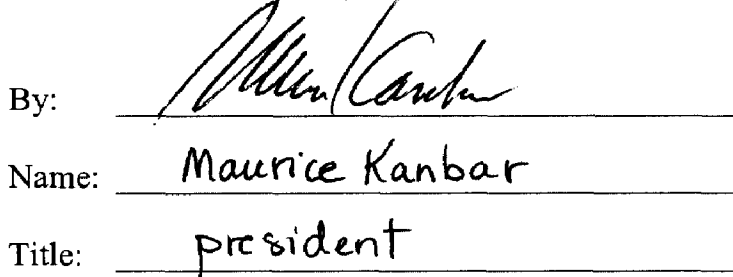 By:
Name: Maurice Kanbar
Title: president